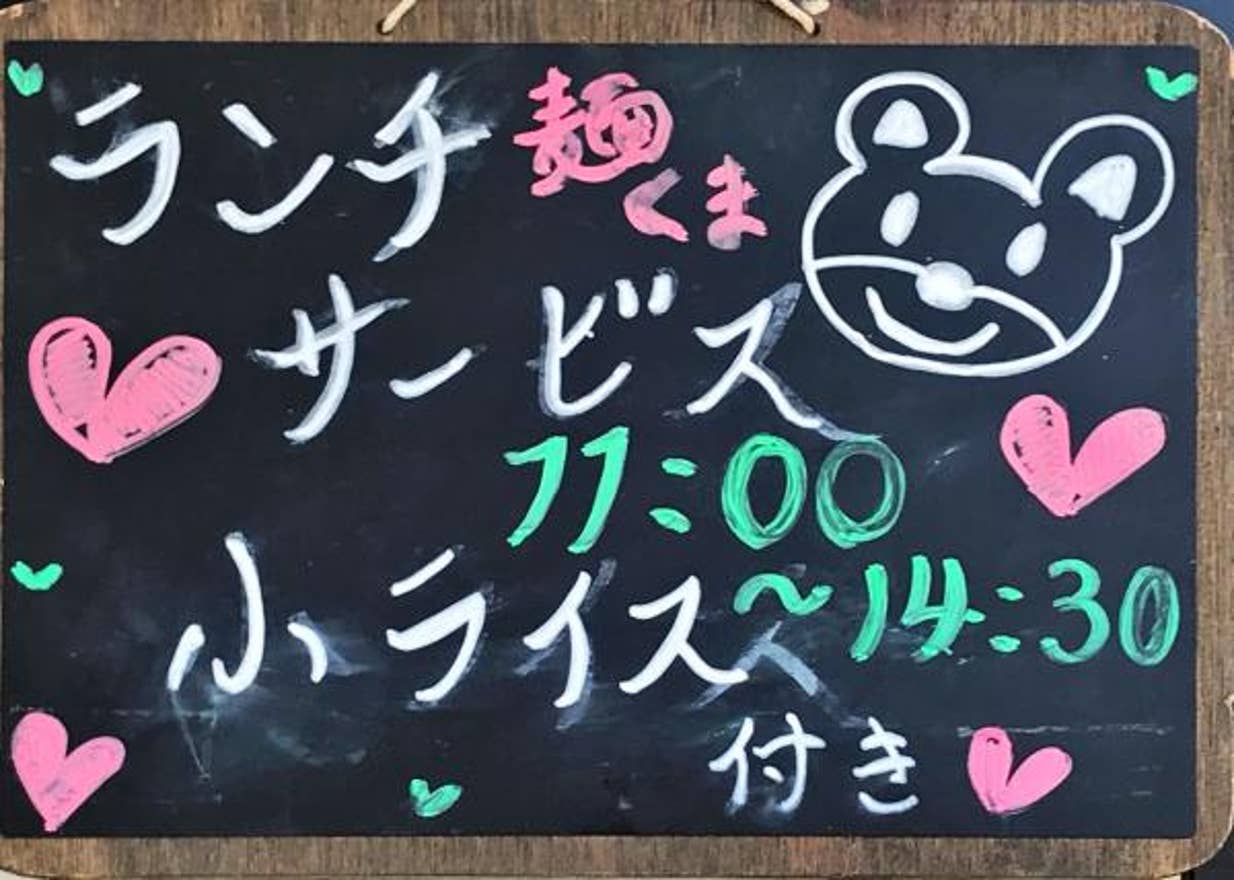 ランチ 麺
くま
サービス
11:00
小ライス ~14:30
付き